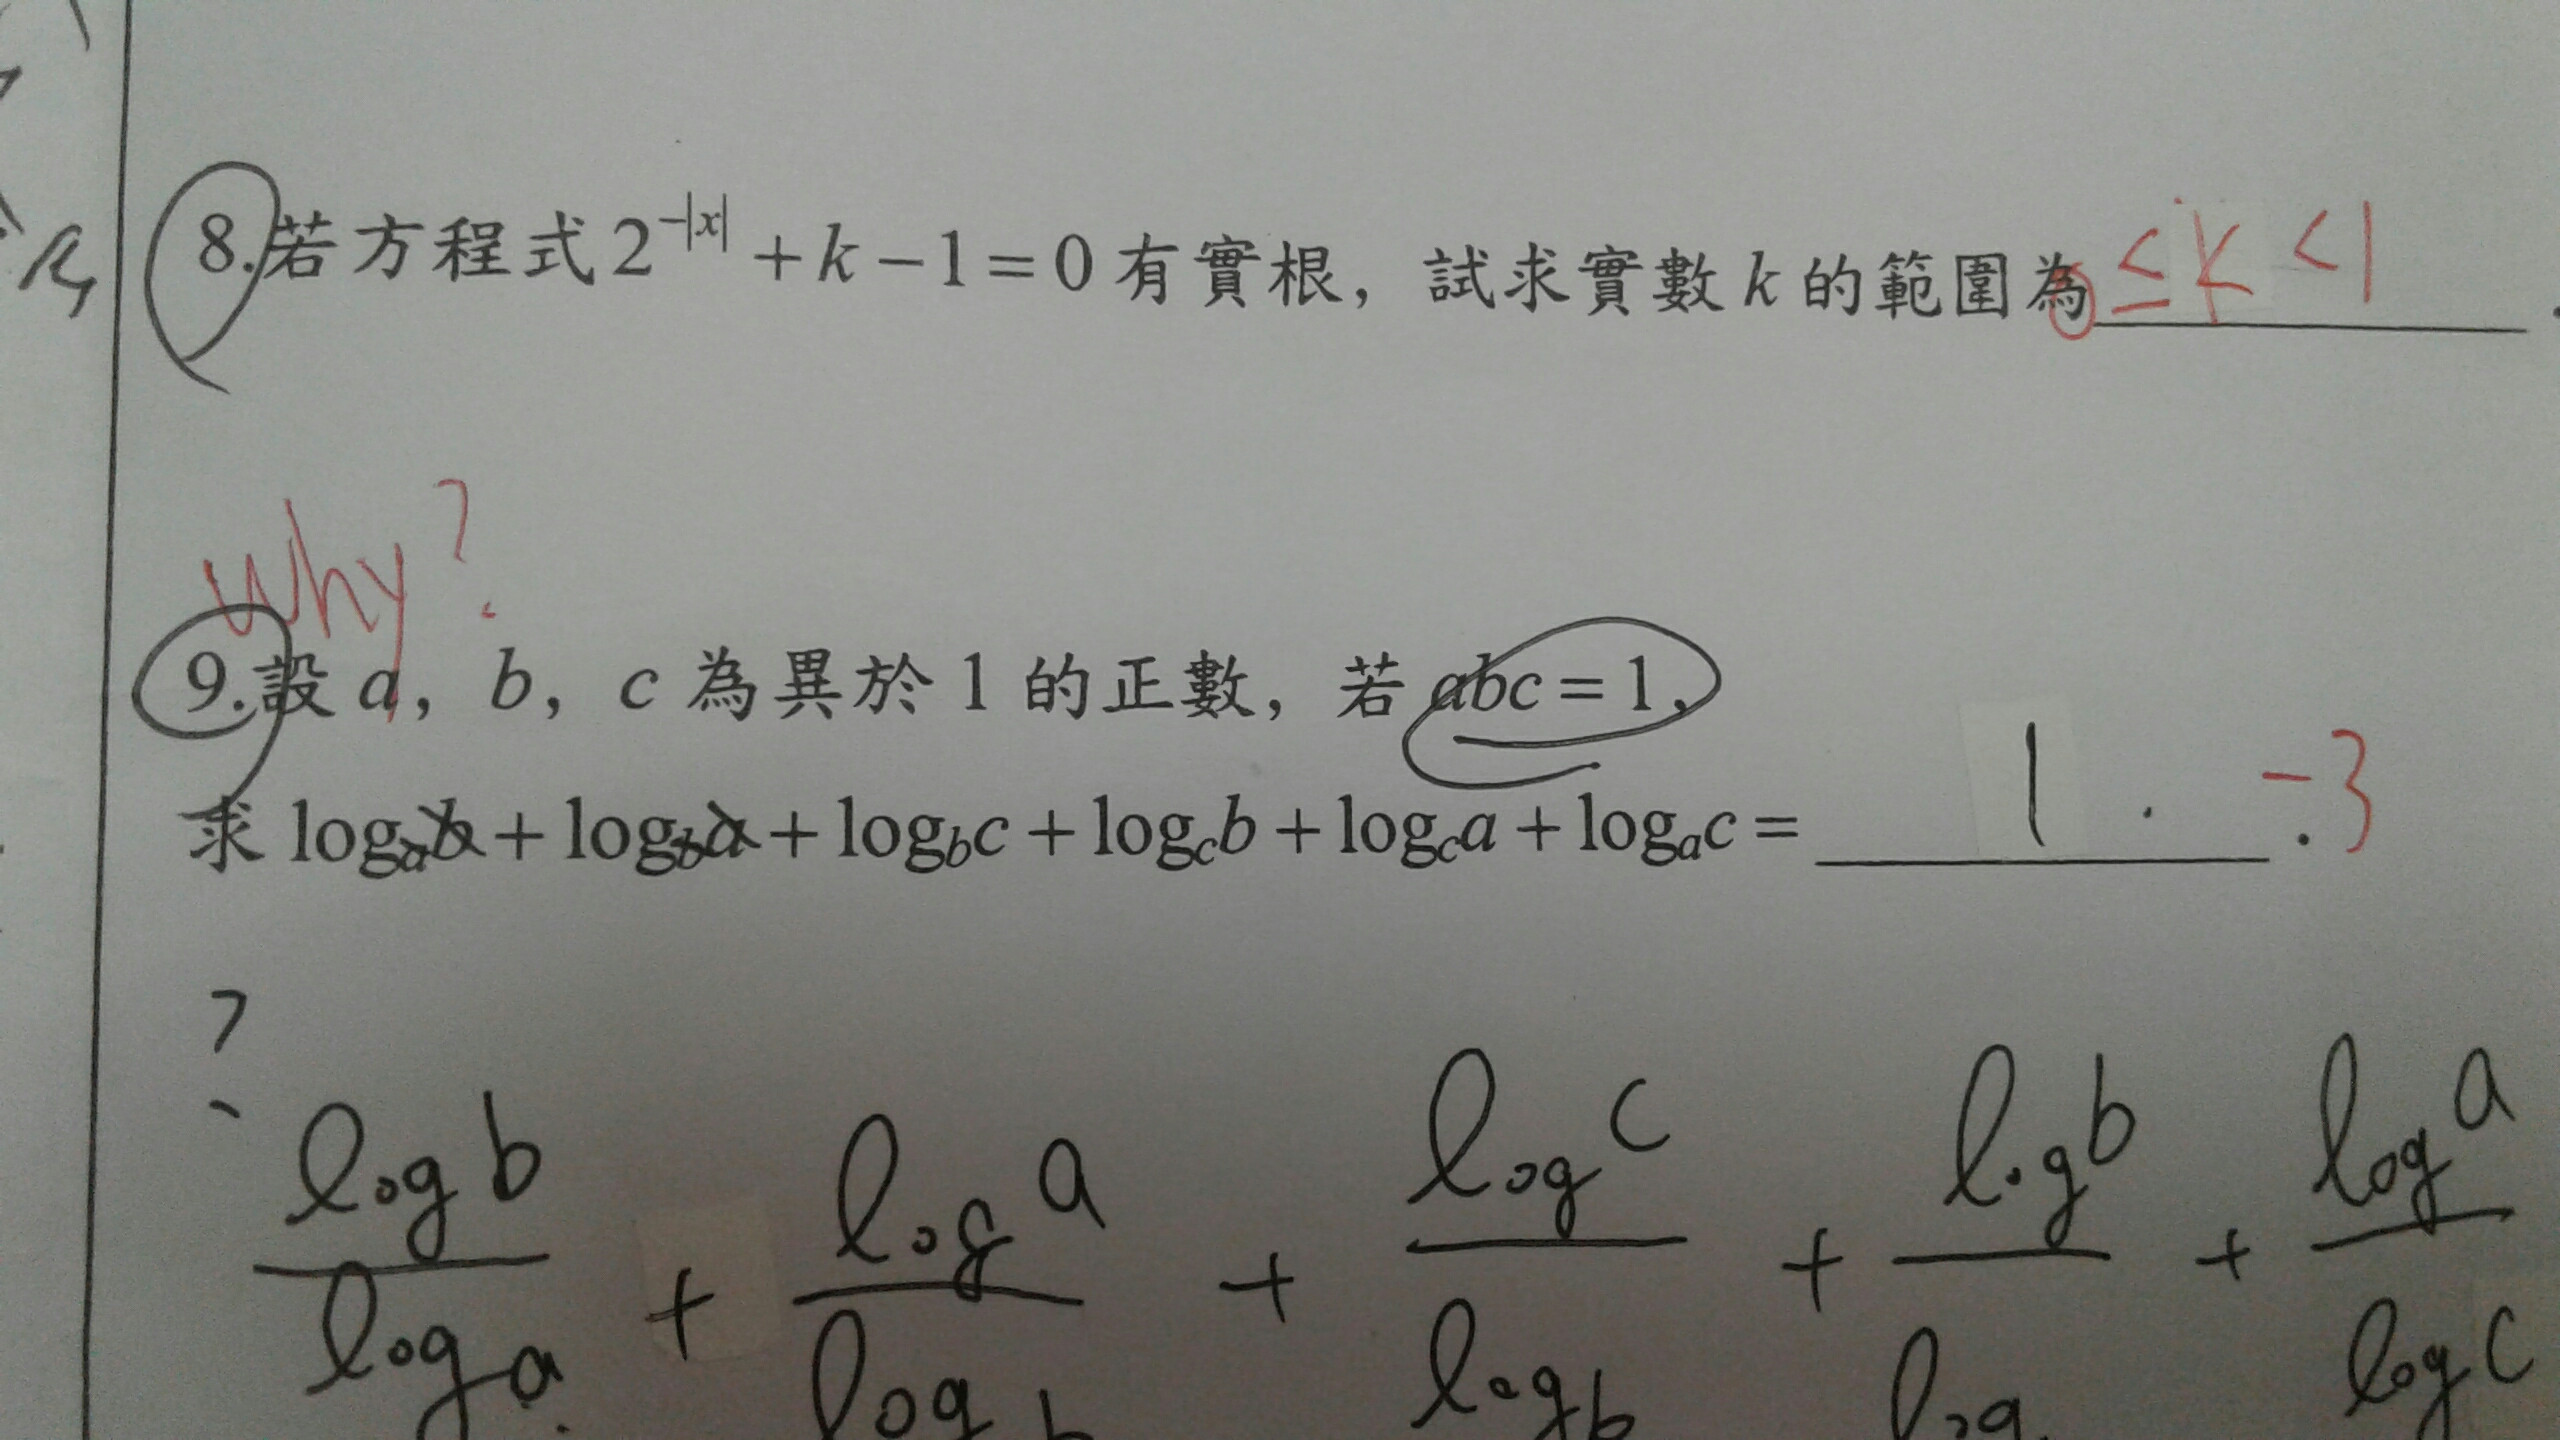 8.若方程式 2^{-|x|} + k - 1 = 0 有實根，試求實數 k 的範圍為 0 ≤ k < 1 .
Why?
9.設 a，b，c 為異於 1 的正數，若 abc = 1，
求 log_a b + log_b a + log_b c + log_c b + log_c a + log_a c = 1 . -3
?
log b / log a + log a / log b + log c / log b + log b / log + log a / log c